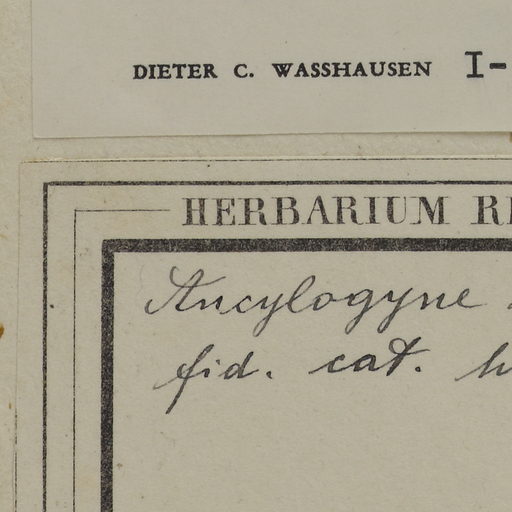 DIETER C. WASSHAUSEN I-
HERBARIUM
Ancylogyne
fid. cat.